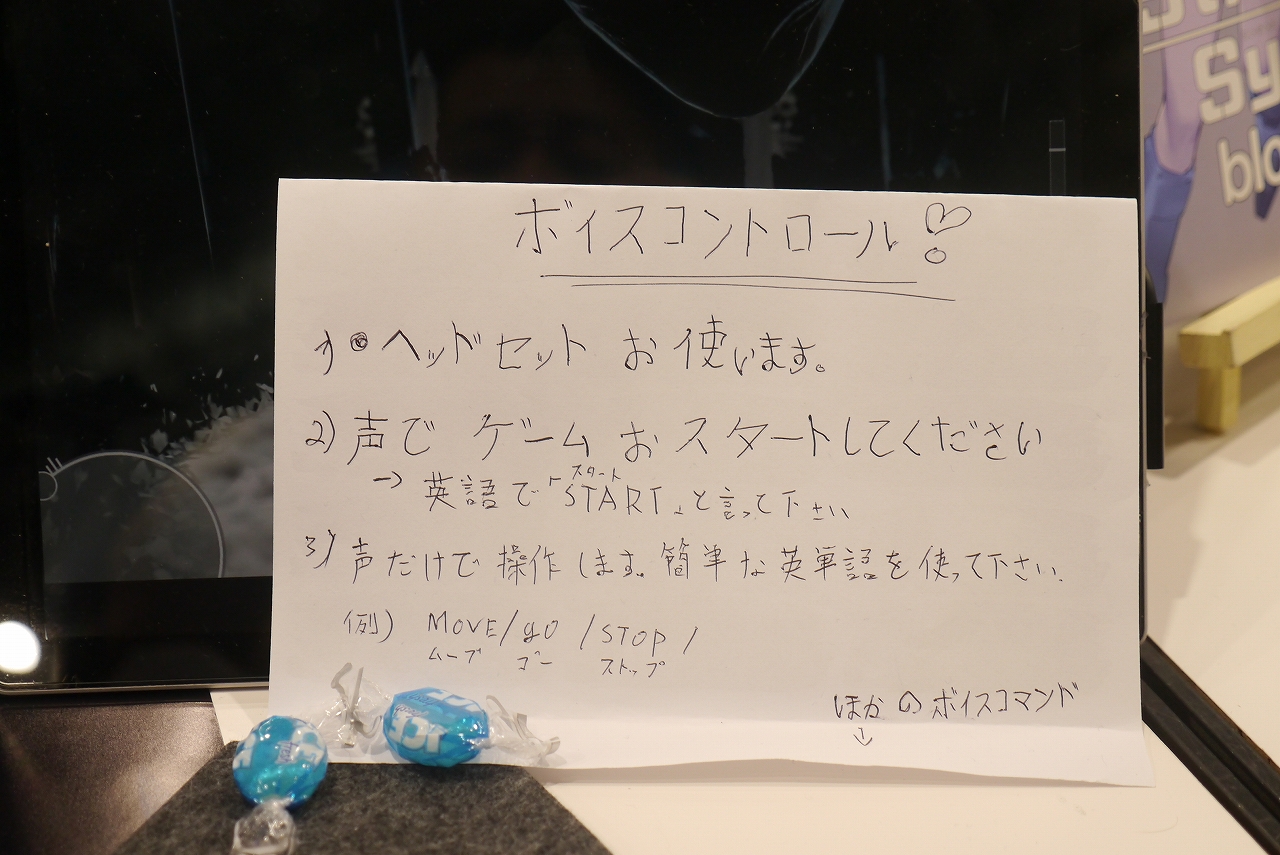 ボイスコントロール!
1) ヘッドセット お 使います。
2) 声で ゲーム お スタートしてください
→ 英語で「START」と言って下さい
スタート
3) 声だけで 操作します。簡単な 英単語を 使って下さい.
例) MOVE/go /STOP/
ムーブ ゴー ストップ
ほかのボイスコマンド
↓
Sy
blo
ICE